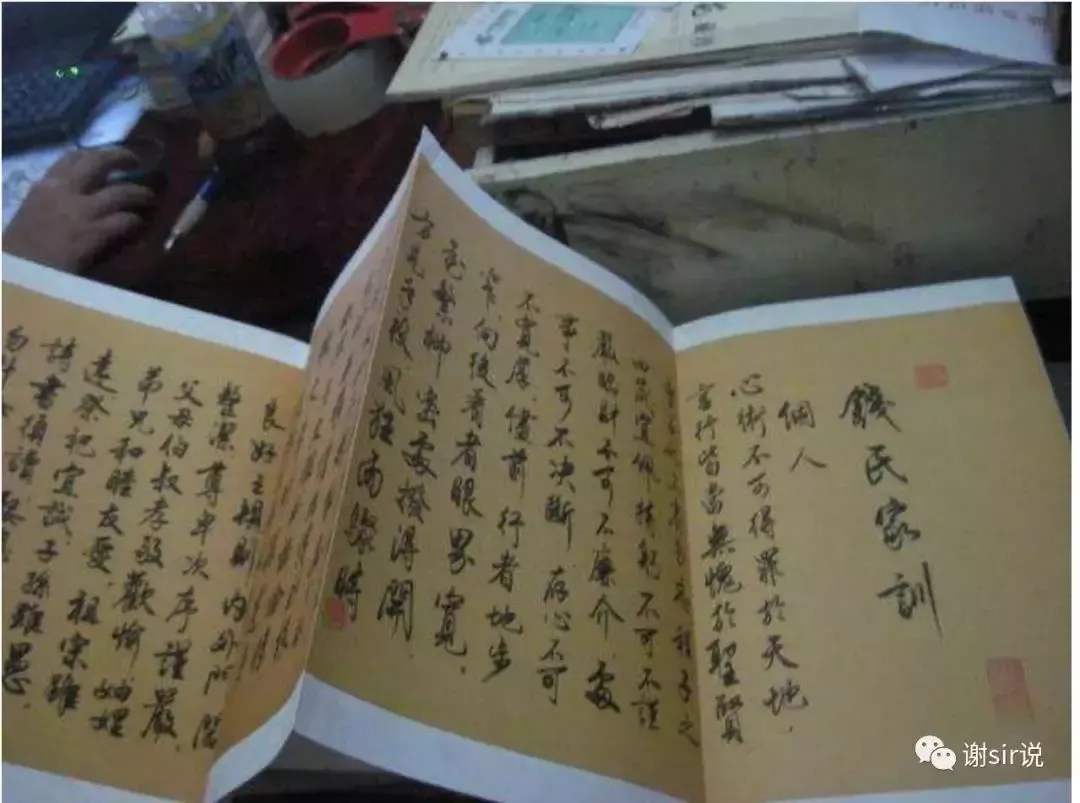 錢氏家訓
個人
心術不可得罪於天地，
言行皆當無愧於聖賢
程子之
四箴宜佩持躬不可不謹
嚴臨財不可不廉介，處
事不可不決斷，存心不可
不寬厚，儘前行者地步
窄，向後看者眼界寬，
花繁柳密處撥得開，
方見手段風狂雨驟時
良好之規則內外門閭
整潔尊卑次序謹嚴，
父母伯叔孝敬歡愉，妯娌
弟兄和睦友愛，祖宗雖
遠祭祀宜誠，子孫雖愚，
詩書須讀，娶
勿計
谢sir说